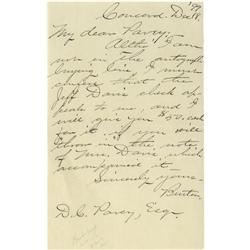 '99
Concord. Dec 18.
My dear Pavey,
Altho I am
not in the autograph
buying line, I must
confess that the
Jeff Davis check ap-
peals to me, and I
will give you $50. cash
for it if you will
throw in the note
of Mrs. Davis which
accompanied it
Sincerely yours-
Burton.
D. C. Pavey, Esq.